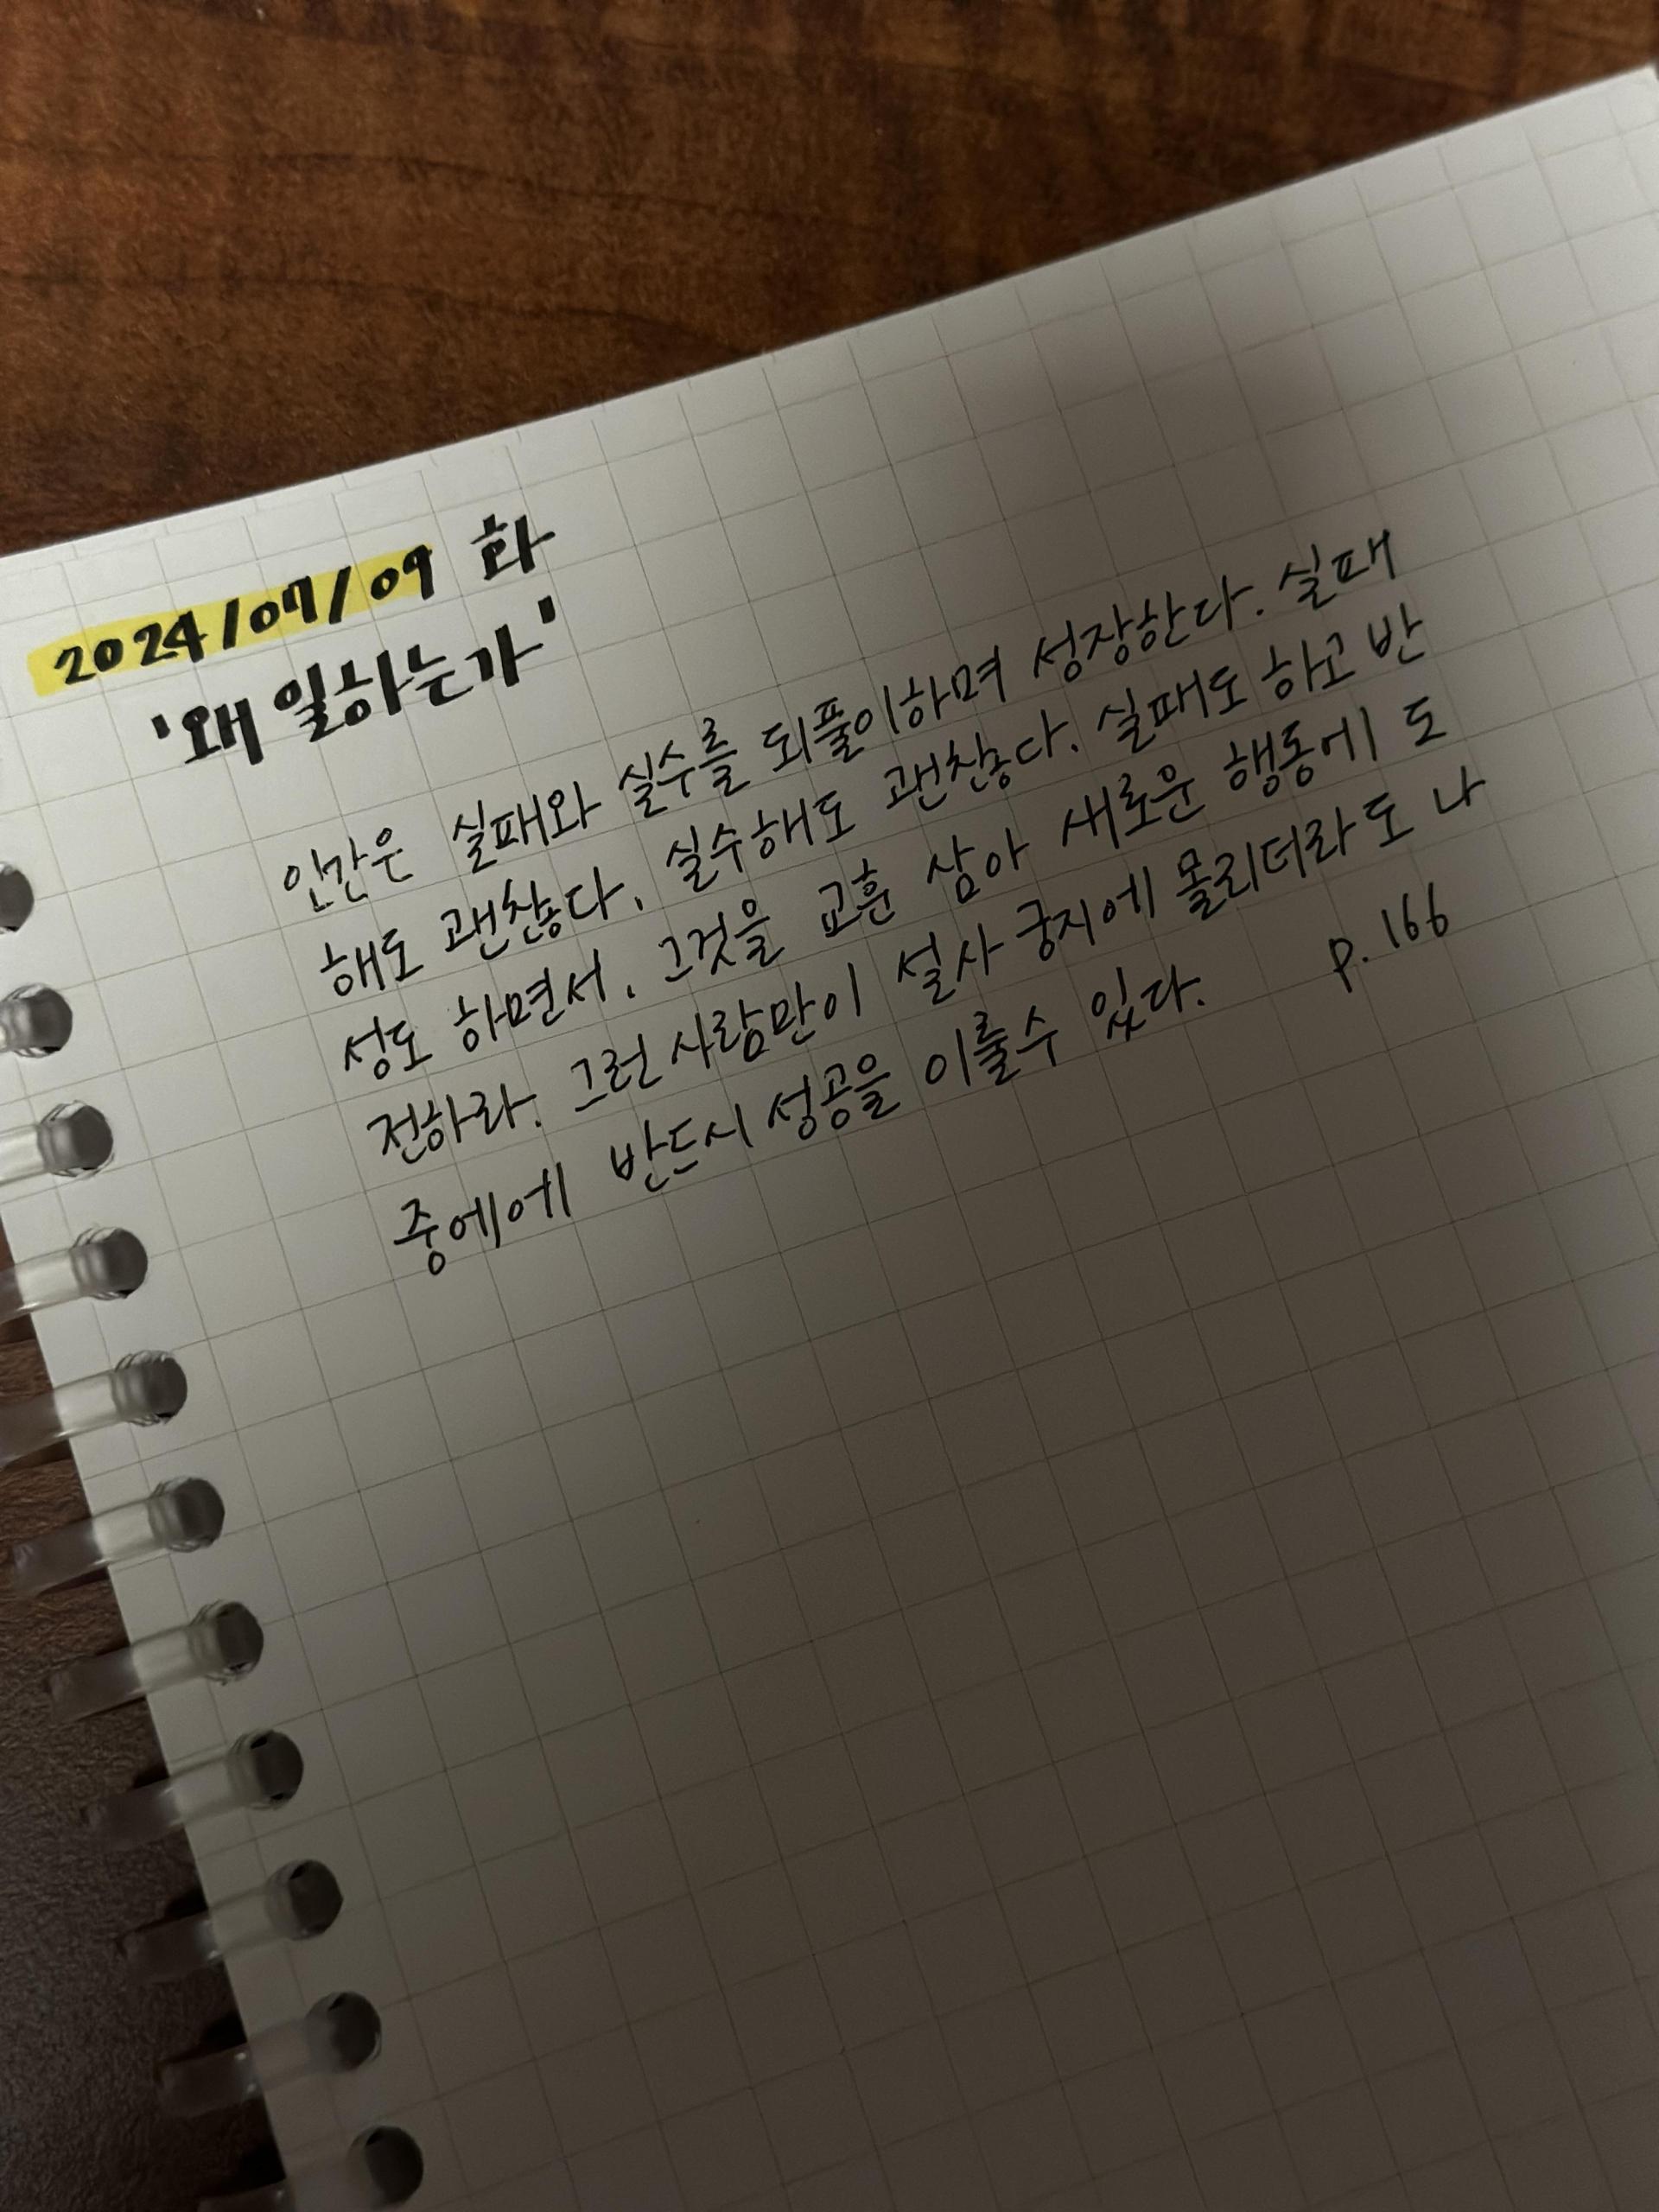 2024/07/09 화
'왜 일하는가'
인간은 실패와 실수를 되풀이하며 성장한다. 실패
해도 괜찮다. 실수해도 괜찮다. 실패도 하고 반
성도 하면서, 그것을 교훈 삼아 새로운 행동에 도
전하라. 그런 사람만이 설사 궁지에 몰리더라도 나
중에에 반드시 성공을 이룰수 있다. p. 166